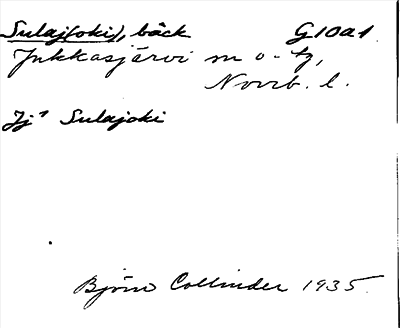 Sulaj(oki), bäck G10a1.
Jukkasjärvi sn o. tg,
Norrb. l.
Jj¹ Sulajoki
Björn Collinder 1935.